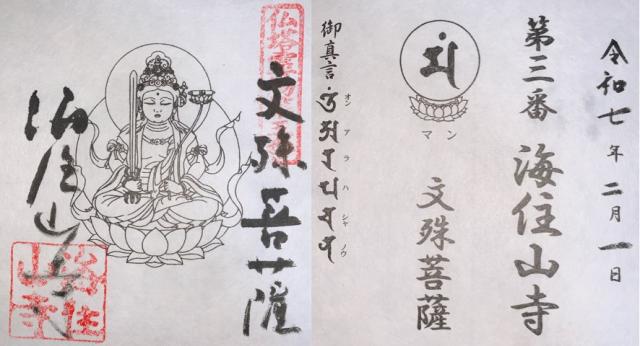 文殊菩薩
海住山寺
仏塔霊場
海住山寺
令和七年二月一日
第三番 海住山寺
マン
文殊菩薩
御真言
オン ア ラ ハ シャ ノウ